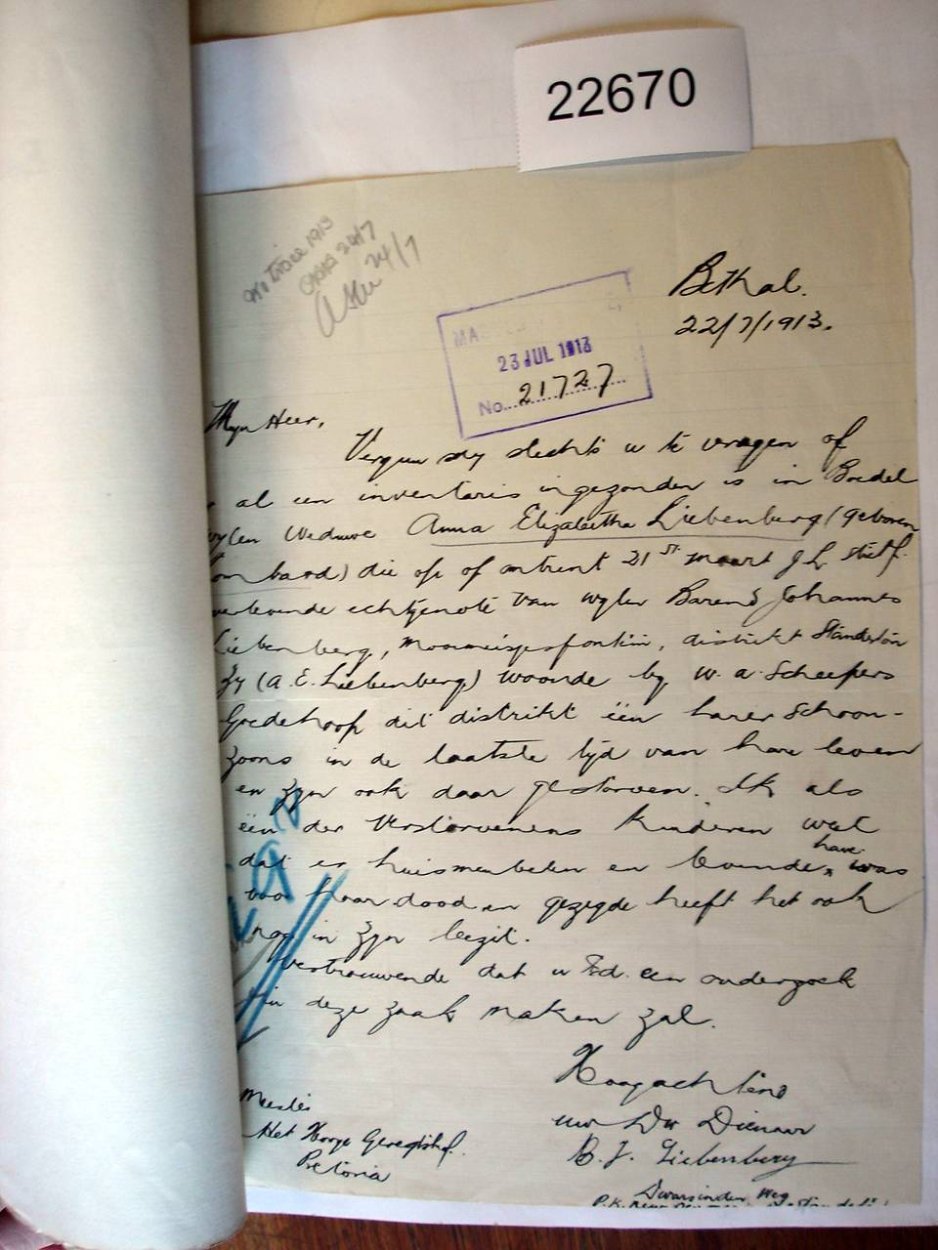 22670
24/7
Bethal.
22/7/1913.
23 JUL 1913
No. 21727
Myn Heer,
Vergun my slechts u te vragen of
al een inventaris ingezonden is in Boedel
wylen Weduwe Anna Elizabetha Liebenberg (geboren
die op of omtrent 21st maart j.l. stierf
echtgenote van wylen Barend Johannes
Liebenberg, distrikt Standerton
Zy (A. E. Liebenberg) woonde by W. A. Scheepers
Goedehoop dit distrikt één harer Schoon-
zoons in de laatste tyd van hare leven
en zyn ook daar gestorven. Ik als
één der Verstorvenens Kinderen weet
dat er huismeubelen en hare was
voor Haar dood en gezegde heeft het ook
nog in zyn bezit.
Vertrouwende dat u Ed. een onderzoek
in deze zaak maken zal.
Hoogachtend
uw Dw Dienaar
B. J. Liebenberg
Meester
Het Hooge Geregtshof.
Pretoria
Dwarsinden Weg
P.K.